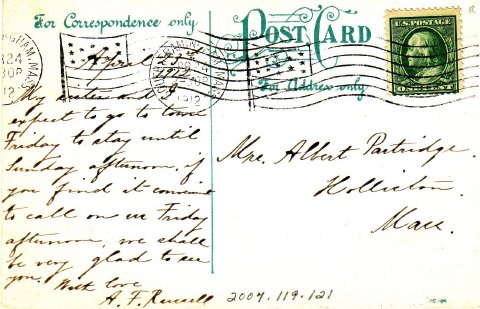 For Correspondence only
POST CARD
For Address only
U.S. POSTAGE
ONE CENT
1912
April
My sister and I
expect to go to town
Friday to stay until
Sunday afternoon, if
you find it convenient
to call on us Friday
afternoon, we shall
be very glad to see
you. With love
A. F. Russell
Mrs. Albert Partridge.
Holliston.
Mass.
2007.119.121